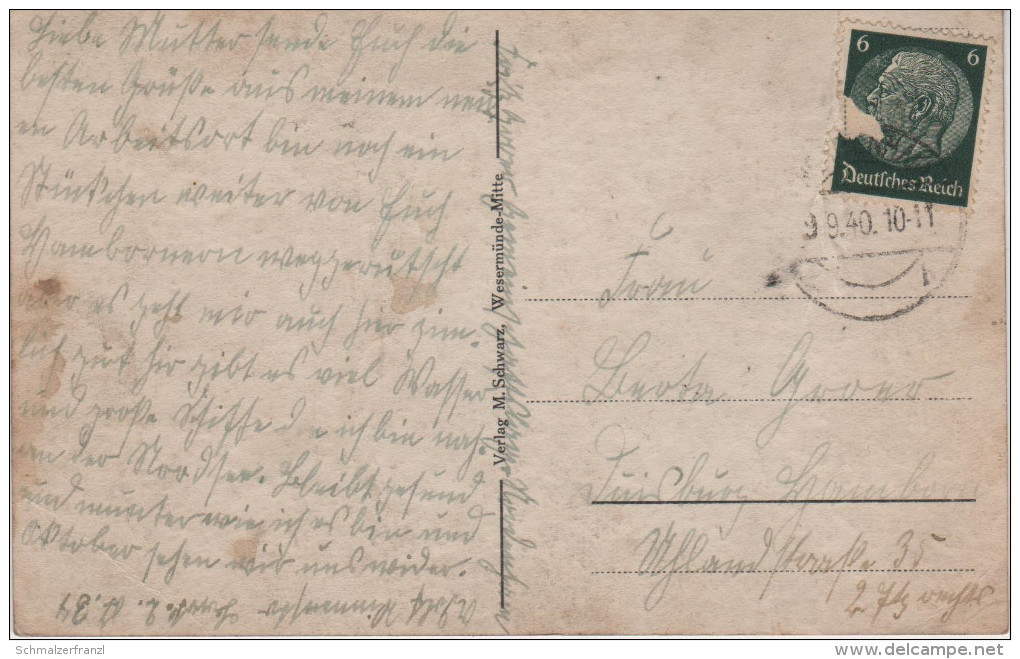 Liebe Mutter sende Euch die
besten Grüße aus meinem neu
en Arbeitsort bin noch ein
Stückchen weiter von Euch
Hambornern weggerutscht
aber es geht mir auch hier ziem-
lich gut hir gibt es viel Wasser
und große Schiffe d e ich bin nah
an der Nordsee. Bleibt gesund
und munter wie ich es bin und
Oktober sehen wir uns wider.
Verlag M. Schwarz, Wesermünde-Mitte
6 6
Deutsches Reich
9 9.40. 10-11
Frau
Berta Groer
Duisburg Hamborn
Uhlandstraße 35
2 rechts
Schmalzerfranzl
delcampe.net